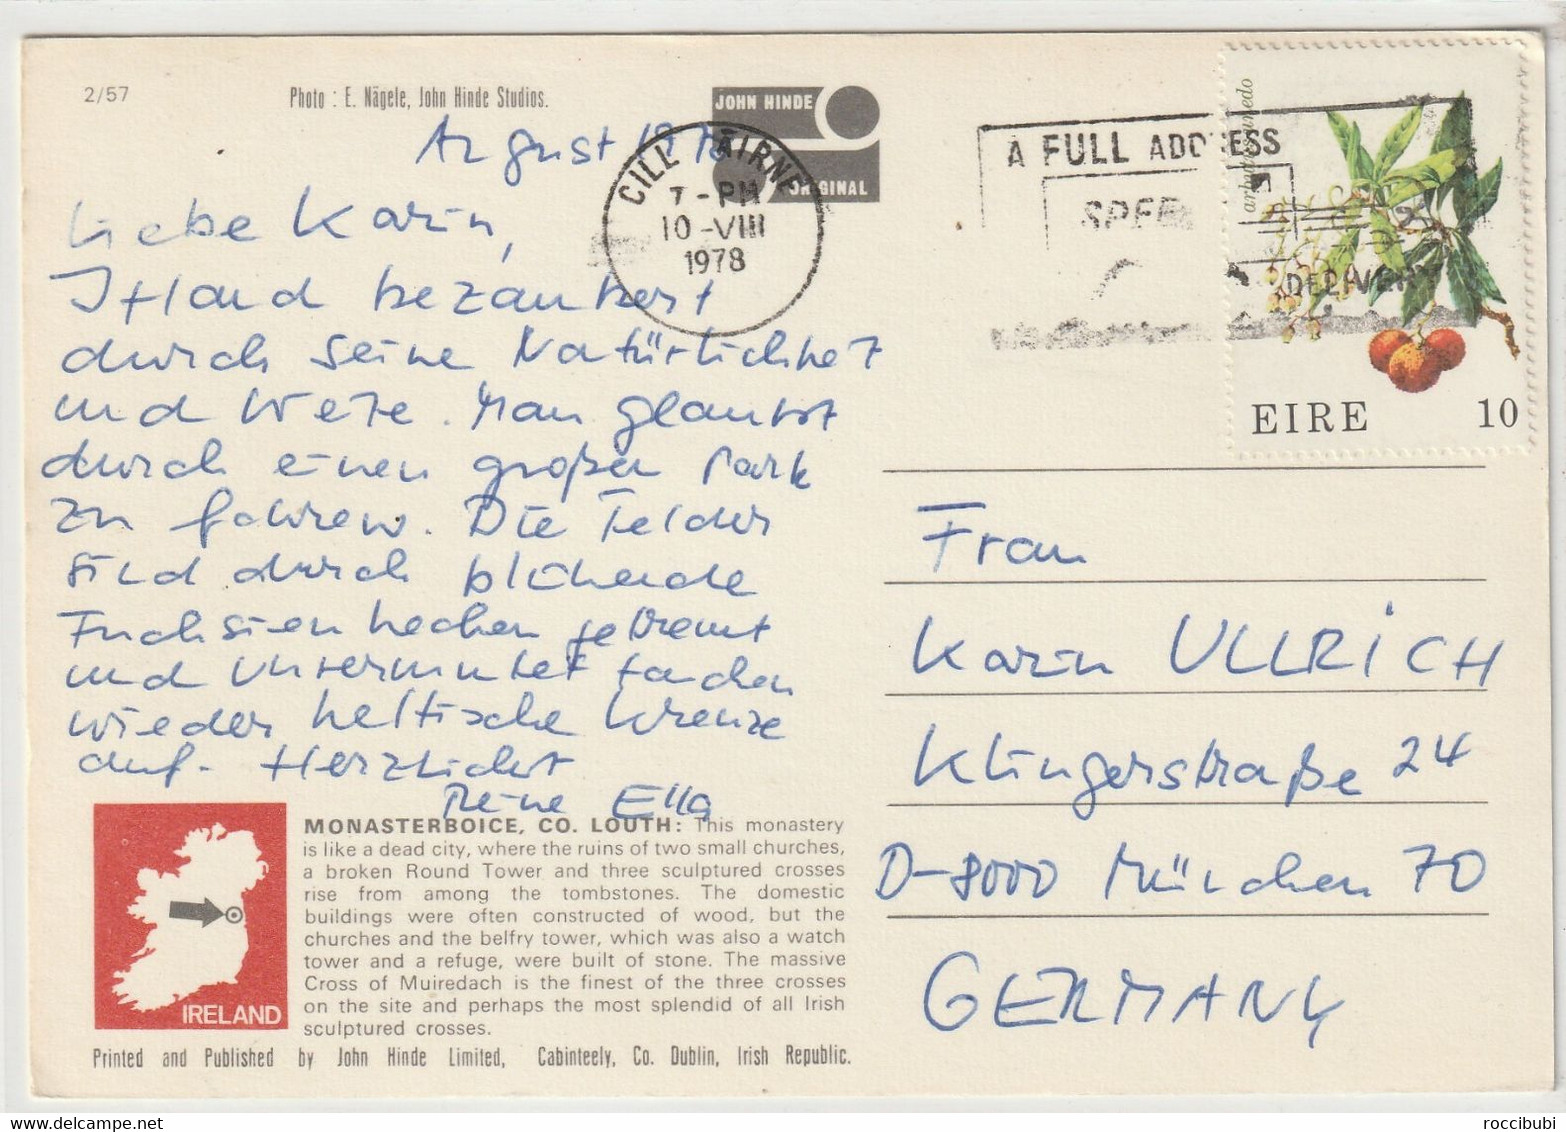 2/57
Photo : E. Nägele, John Hinde Studios.
JOHN HINDE
ORIGINAL
August 1978
CILL AIRNE
7-PM
10-VIII
1978
A FULL ADDRESS
SPEE
DELIVERY
arbutus unedo
EIRE 10
Liebe Karin,
Irland bezaubert
durch seine Natürlichkeit
und Weite. Man glaubt
durch einen großen Park
zu fahren. Die Felder
sind durch blühende
Fuchsienhecken getrennt
und unvermutet tauchen
wieder keltische Kreuze
auf. Herzlichst
Deine Ella
Frau
Karin ULLRICH
Klingerstraße 24
D-8000 München 70
GERMANY
IRELAND
MONASTERBOICE, CO. LOUTH: This monastery
is like a dead city, where the ruins of two small churches,
a broken Round Tower and three sculptured crosses
rise from among the tombstones. The domestic
buildings were often constructed of wood, but the
churches and the belfry tower, which was also a watch
tower and a refuge, were built of stone. The massive
Cross of Muiredach is the finest of the three crosses
on the site and perhaps the most splendid of all Irish
sculptured crosses.
Printed and Published by John Hinde Limited, Cabinteely, Co. Dublin, Irish Republic.
roccibubi